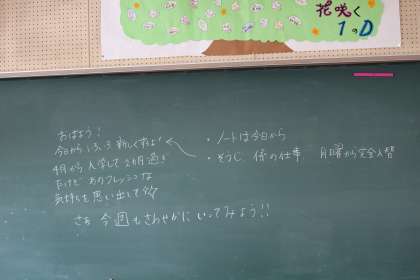 花咲く
1のD
おはよう!
今日から いろいろ新しくすよ
4月から 入学して2カ月過ぎ
たけど あのフレッシュな
気持ちを思い出して
さあ 今週もさわやかに いってみよう!!
・ノートは今日から
・そうじ、係の仕事 月曜から完全入替